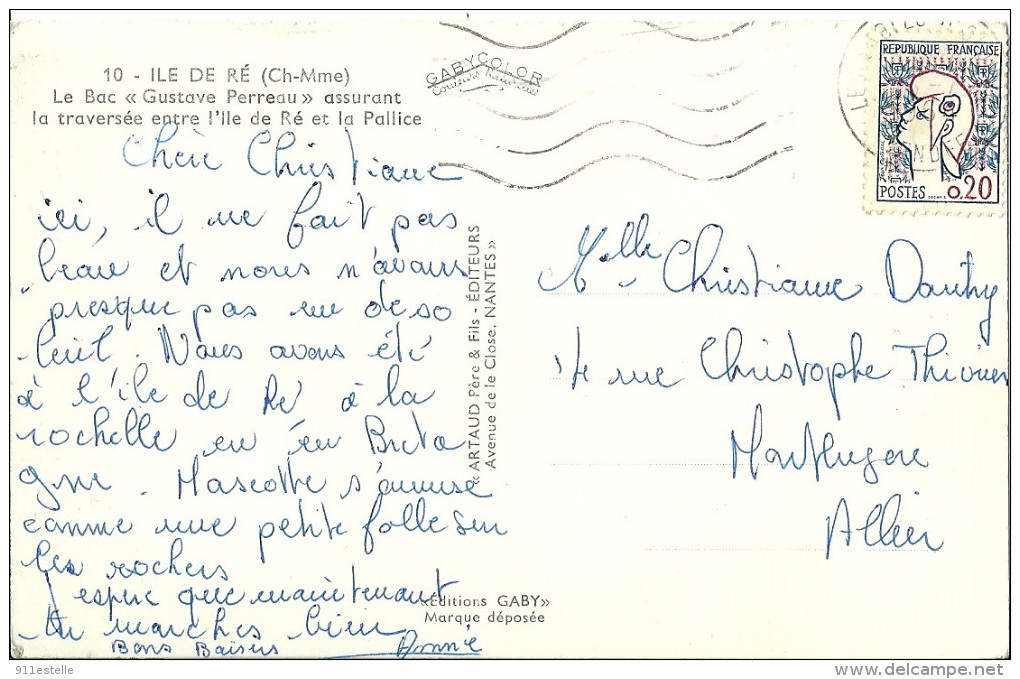 10 - ILE DE RÉ (Ch-Mme)
Le Bac « Gustave Perreau » assurant
la traversée entre l'Ile de Ré et la Pallice
GABYCOLOR
RÉPUBLIQUE FRANÇAISE
POSTES 0.20
Chère Christiane
ici, il ne fait pas
beau et nous n'avons
presque pas eu de so
leil. Nous avons été
à l'île de Ré à la
rochelle en Breta
gne. Mascotte s'amuse
comme une petite folle sur
les rochers
J'espère que maintenant
tu marches bien
Bons Baisers Annie
« ARTAUD Père & Fils - ÉDITEURS
Avenue de le Close, NANTES »
«Éditions GABY»
Marque déposée
Melle Christiane Dautry
14 rue Christophe Thivrier
Montluçon
Allier
911estelle
delcampe.net